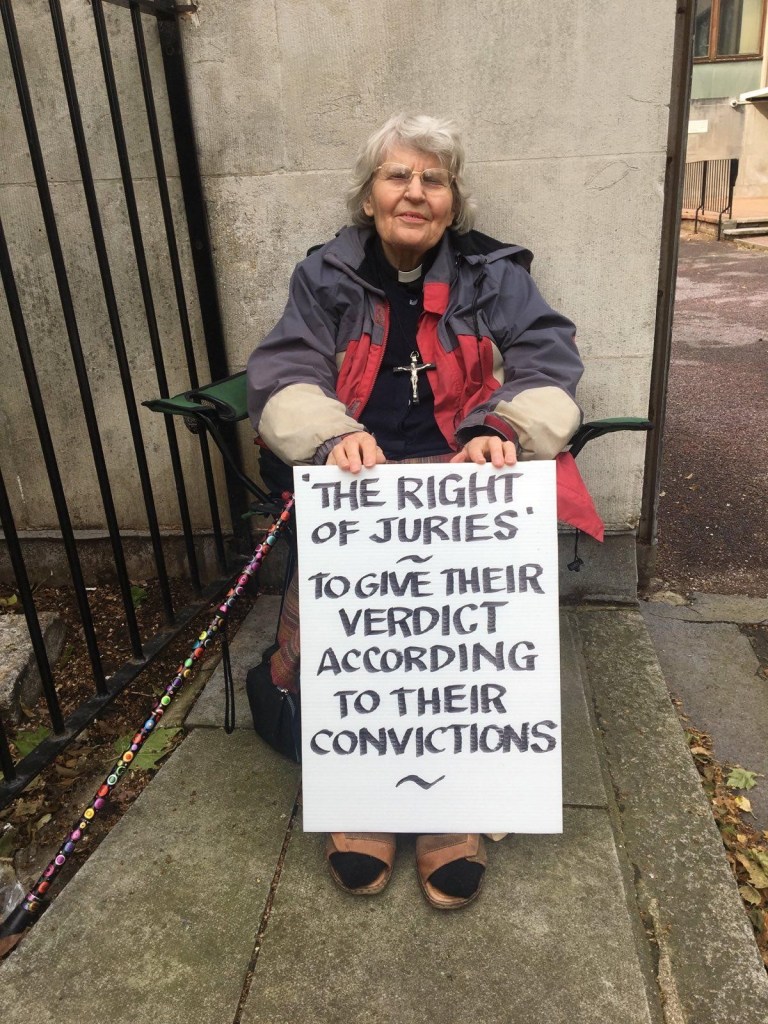 'THE RIGHT
OF JURIES'
~
TO GIVE THEIR
VERDICT
ACCORDING
TO THEIR
CONVICTIONS
~